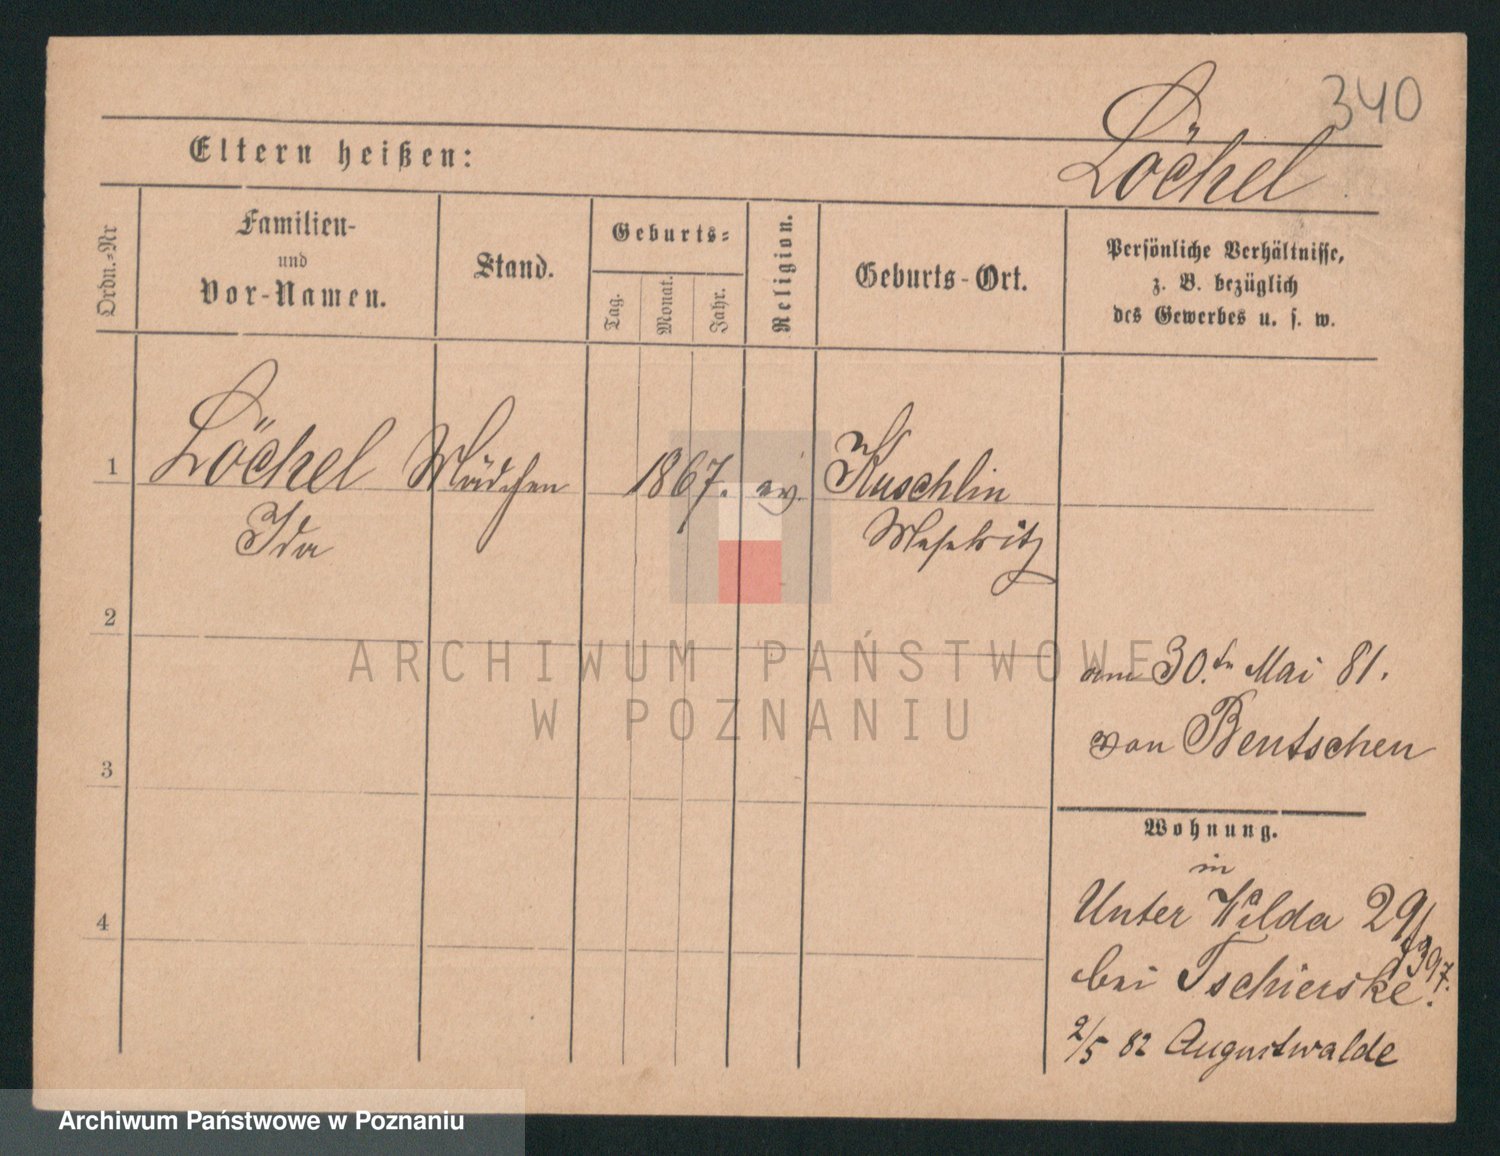 340
Löchel
Eltern heißen:
Ordn.-Nr
Familien-
und
Vor-Namen.
Stand.
Geburts-
Tag.
Monat.
Jahr.
Religion.
Geburts-Ort.
Persönliche Verhältnisse,
z. B. bezüglich
des Gewerbes u. s. w.
1
Löchel Mädchen 1867. ev. Kuschlin
Ida Meseritz
2
am 30.ten Mai 81.
von Bentschen
3
Wohnung.
in
4
Unter Wilda 29/
1397.
bei Tschierske.
2/5 82 Augustwalde
ARCHIWUM PAŃSTWOWE
W POZNANIU
Archiwum Państwowe w Poznaniu